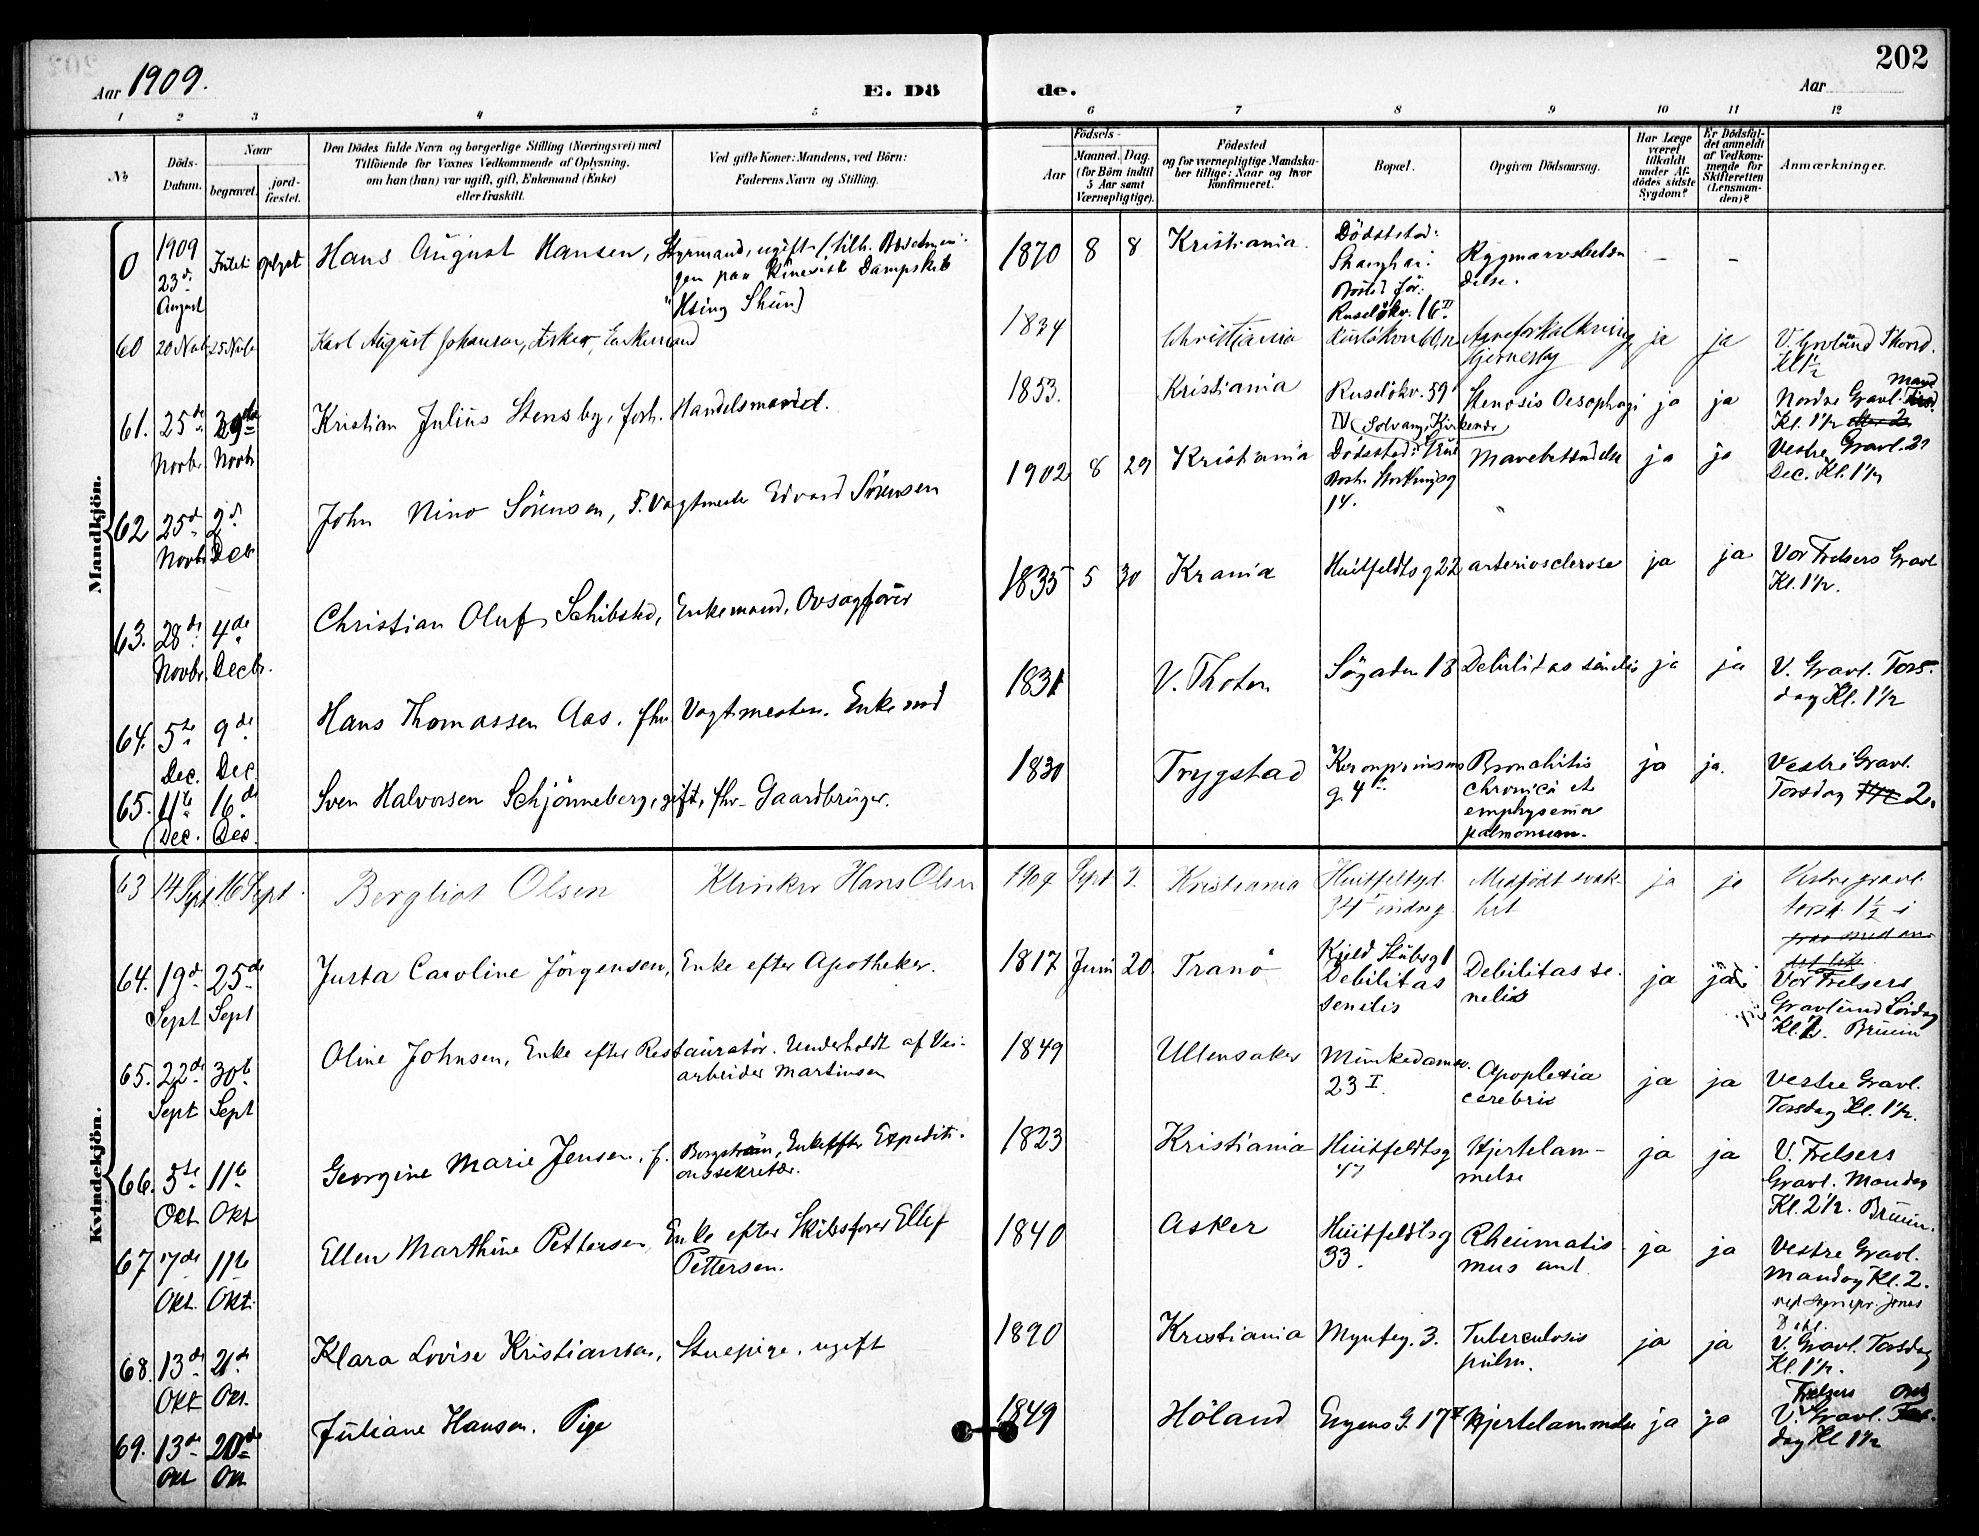 202
Aar 1909.
E. Dö de.
Aar
1 2 3 4 5 6 7 8 9 10 11 12
No
Döds-Datum.
Naar
begravet.
jord-fæstet.
Den Dödes fulde Navn og borgerlige Stilling (Næringsvei) med
Tilföiende for Voxnes Vedkommende af Oplysning,
om han (hun) var ugift, gift, Enkemand (Enke)
eller fraskilt.
Ved gifte Koner: Mandens, ved Börn:
Faderens Navn og Stilling.
Födsels-
Aar
Maaned. Dag.
(for Börn indtil
5 Aar samt
Værnepligtige).
Födested
og for værnepligtige Mandska-
ber tillige: Naar og hvor
konfirmeret.
Bopæl.
Opgiven Dödsaarsag.
Har Læge
været
tilkaldt
under Af-
dödes sidste
Sygdom?
Er Dödsfal-
det anmeldt
af Vedkom-
mende for
Skifteretten
(Lensman-
den)?
Anmærkninger.
Mandkjön.
0 1909 23de August Intet oplyst Hans August Hansen, Styrmand, ugift (tilh. Besætnin-
gen paa Kinesisk Dampskib
"Hsing Shun)
1870 8 8 Kristiania. Dödssted:
Shanghai.
Bosted för:
Ruselökv. 16 II.
Rygmarvsbetæn
delse. – –
60 20 Novb 25 Novb Karl August Johansen, Enkemand
1834 Christiania Aareforkalkning ja ja V. Gravlund
Kl 1½
61. 25de Novbr. Novbr Kristian Julius Stensby, forh. Handelsmand.
1853. Kristiania Ruselökv. 59
IV
Stenosis Oesophagi ja ja Nordre Gravl.
Kl. 1½
62 25de Novbr. 2de Decb John Nino Sörensen, F. Vagtmester Edvard Sörensen
1902 8 29 Kristiania Dödssted:
14.
Mavebetændelse ja ja Vestre Gravl. 2
Dec. Kl. 1½
63. 28de Novbr. 4de Decbr. Christian Oluf Schibsted, Enkemand,
1835 5 30 Krania Huitfeldtsg 22 arteriosclerose ja ja Vor Frelsers Gravl
Kl. 1½.
64. 5te Dec. 9de Dec. Hans Thomassen Aas. fhv Vagtmester. Enkemd
1831 V. Thoten Sögaden 18 Debilitas senilis ja ja V. Gravl. Tors-
dag Kl. 1½
65. 11te Dec. 16de Dec. Sven Halvorsen Schjönneberg, gift, fhv. Gaardbruger.
1830 Trygstad Kronprinsens
g. 4
Bronchitis
chronica et
emphysema
pulmonum. ja ja. Vestre Gravl.
Torsdag 2.
Kvindekjön.
63 14 Spt. 16 Sept. Bergliot Olsen Klinker Hans Olsen
1909 Sept 2. Kristiania Huitfeldtsgd.
34
Medfödt svak-
het ja ja Vestre gravl.
torsd. 1½ i
64. 19de Sept 25de Sept Justa Caroline Jörgensen, Enke efter Apotheker.
1817 Juni 20. Tranö Kjeld Stubsg 1
Debilitas
senilis
Debilitas se-
nelis ja ja Vor Frelsers
Gravlund Lördag
Kl. 2. Bruun
65. 22de Sept 30te Sept Oline Johnsen, Enke efter Restauratör. Underholdt af Vei-
arbeider Martinsen
1849 Ullensaker Munkedamsv.
23 I.
Apoplexia
cerebris ja ja Vestre Gravl.
Torsdag Kl. 1½.
66. 5te Oct 11te Okt Georgine Marie Jensen, f. Bergström, Enke efter Expediti-
onssekretær.
1823 Kristiania Huitfeldtsg
47
Hjertelam-
melse ja ja V. Frelsers
Gravl. Mandag
Kl. 2½. Bruun.
67 7de Okt. 11te Okt. Ellen Marthine Pettersen, Enke efter Skibsförer Ellef
Pettersen.
1840 Asker Huitfeldtsg
33.
Rheumatis
mus ja ja Vestre Gravl.
Mandag Kl. 2.
68. 13de Okt 21de Okt. Klara Lovise Kristiansen, Stuepige, ugift
1890 Kristiania Myntg. 3. Tuberculosis
pulm. ja ja V. Gravl. Torsdag
Kl. 1½.
69. 13de Okt 20de Okt Juliane Hansen. Pige
1849 Höland Engens G. 17 Hjertelammelse ja ja Frelsers Ons
V. Gravl.
dag Kl 1½